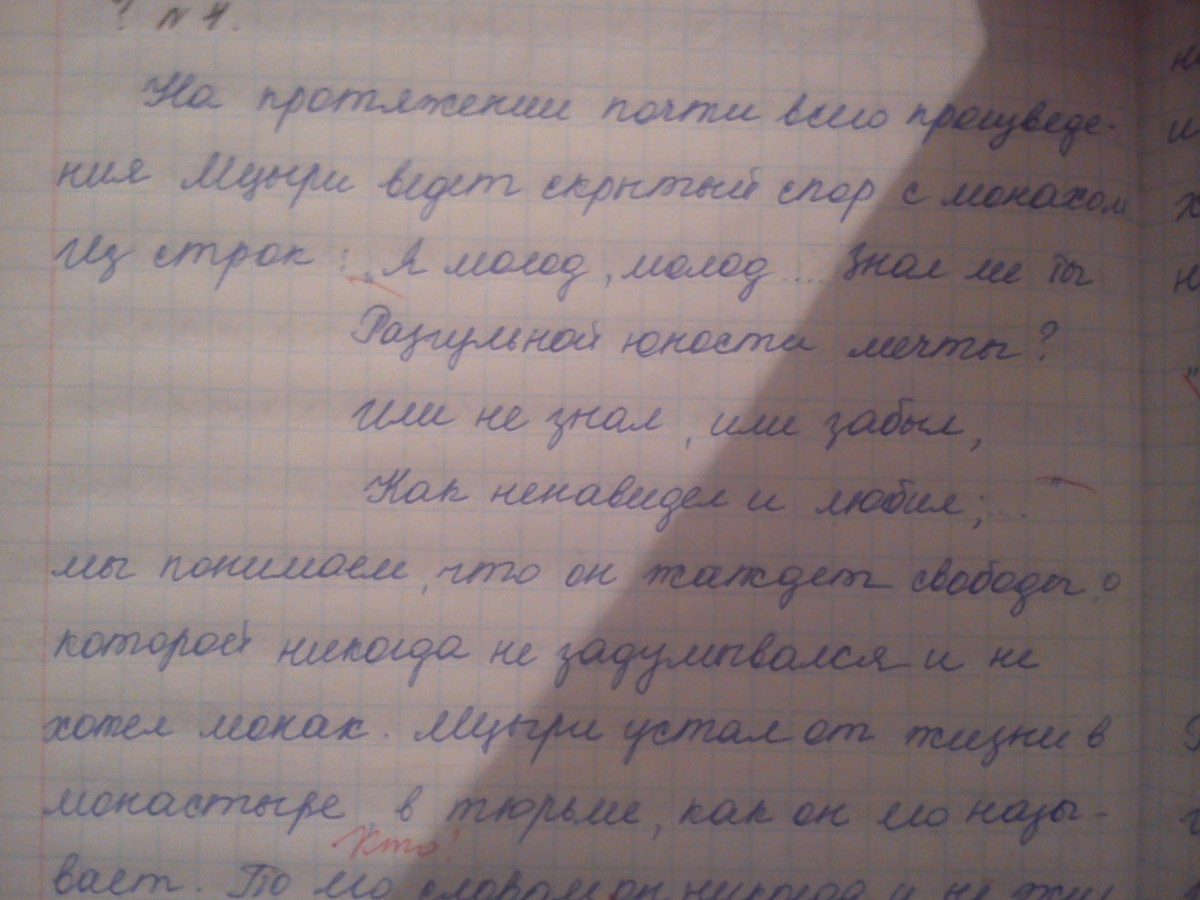 ? № 4.
На протяжении почти всего произведе-
ния Мцыри ведет скрытый спор с монахом
Из строк : „Я молод, молод.... Знал ли ты
Разгульной юности мечты?
Или не знал, или забыл,
Как ненавидел и любил;..."
мы понимаем, что он жаждет свободы, о
которой никогда не задумывался и не
хотел монах. Мцыри устал от жизни в
монастыре, в тюрьме, как он его назы-
Кто?
вает. По его словам он никогда и не жил